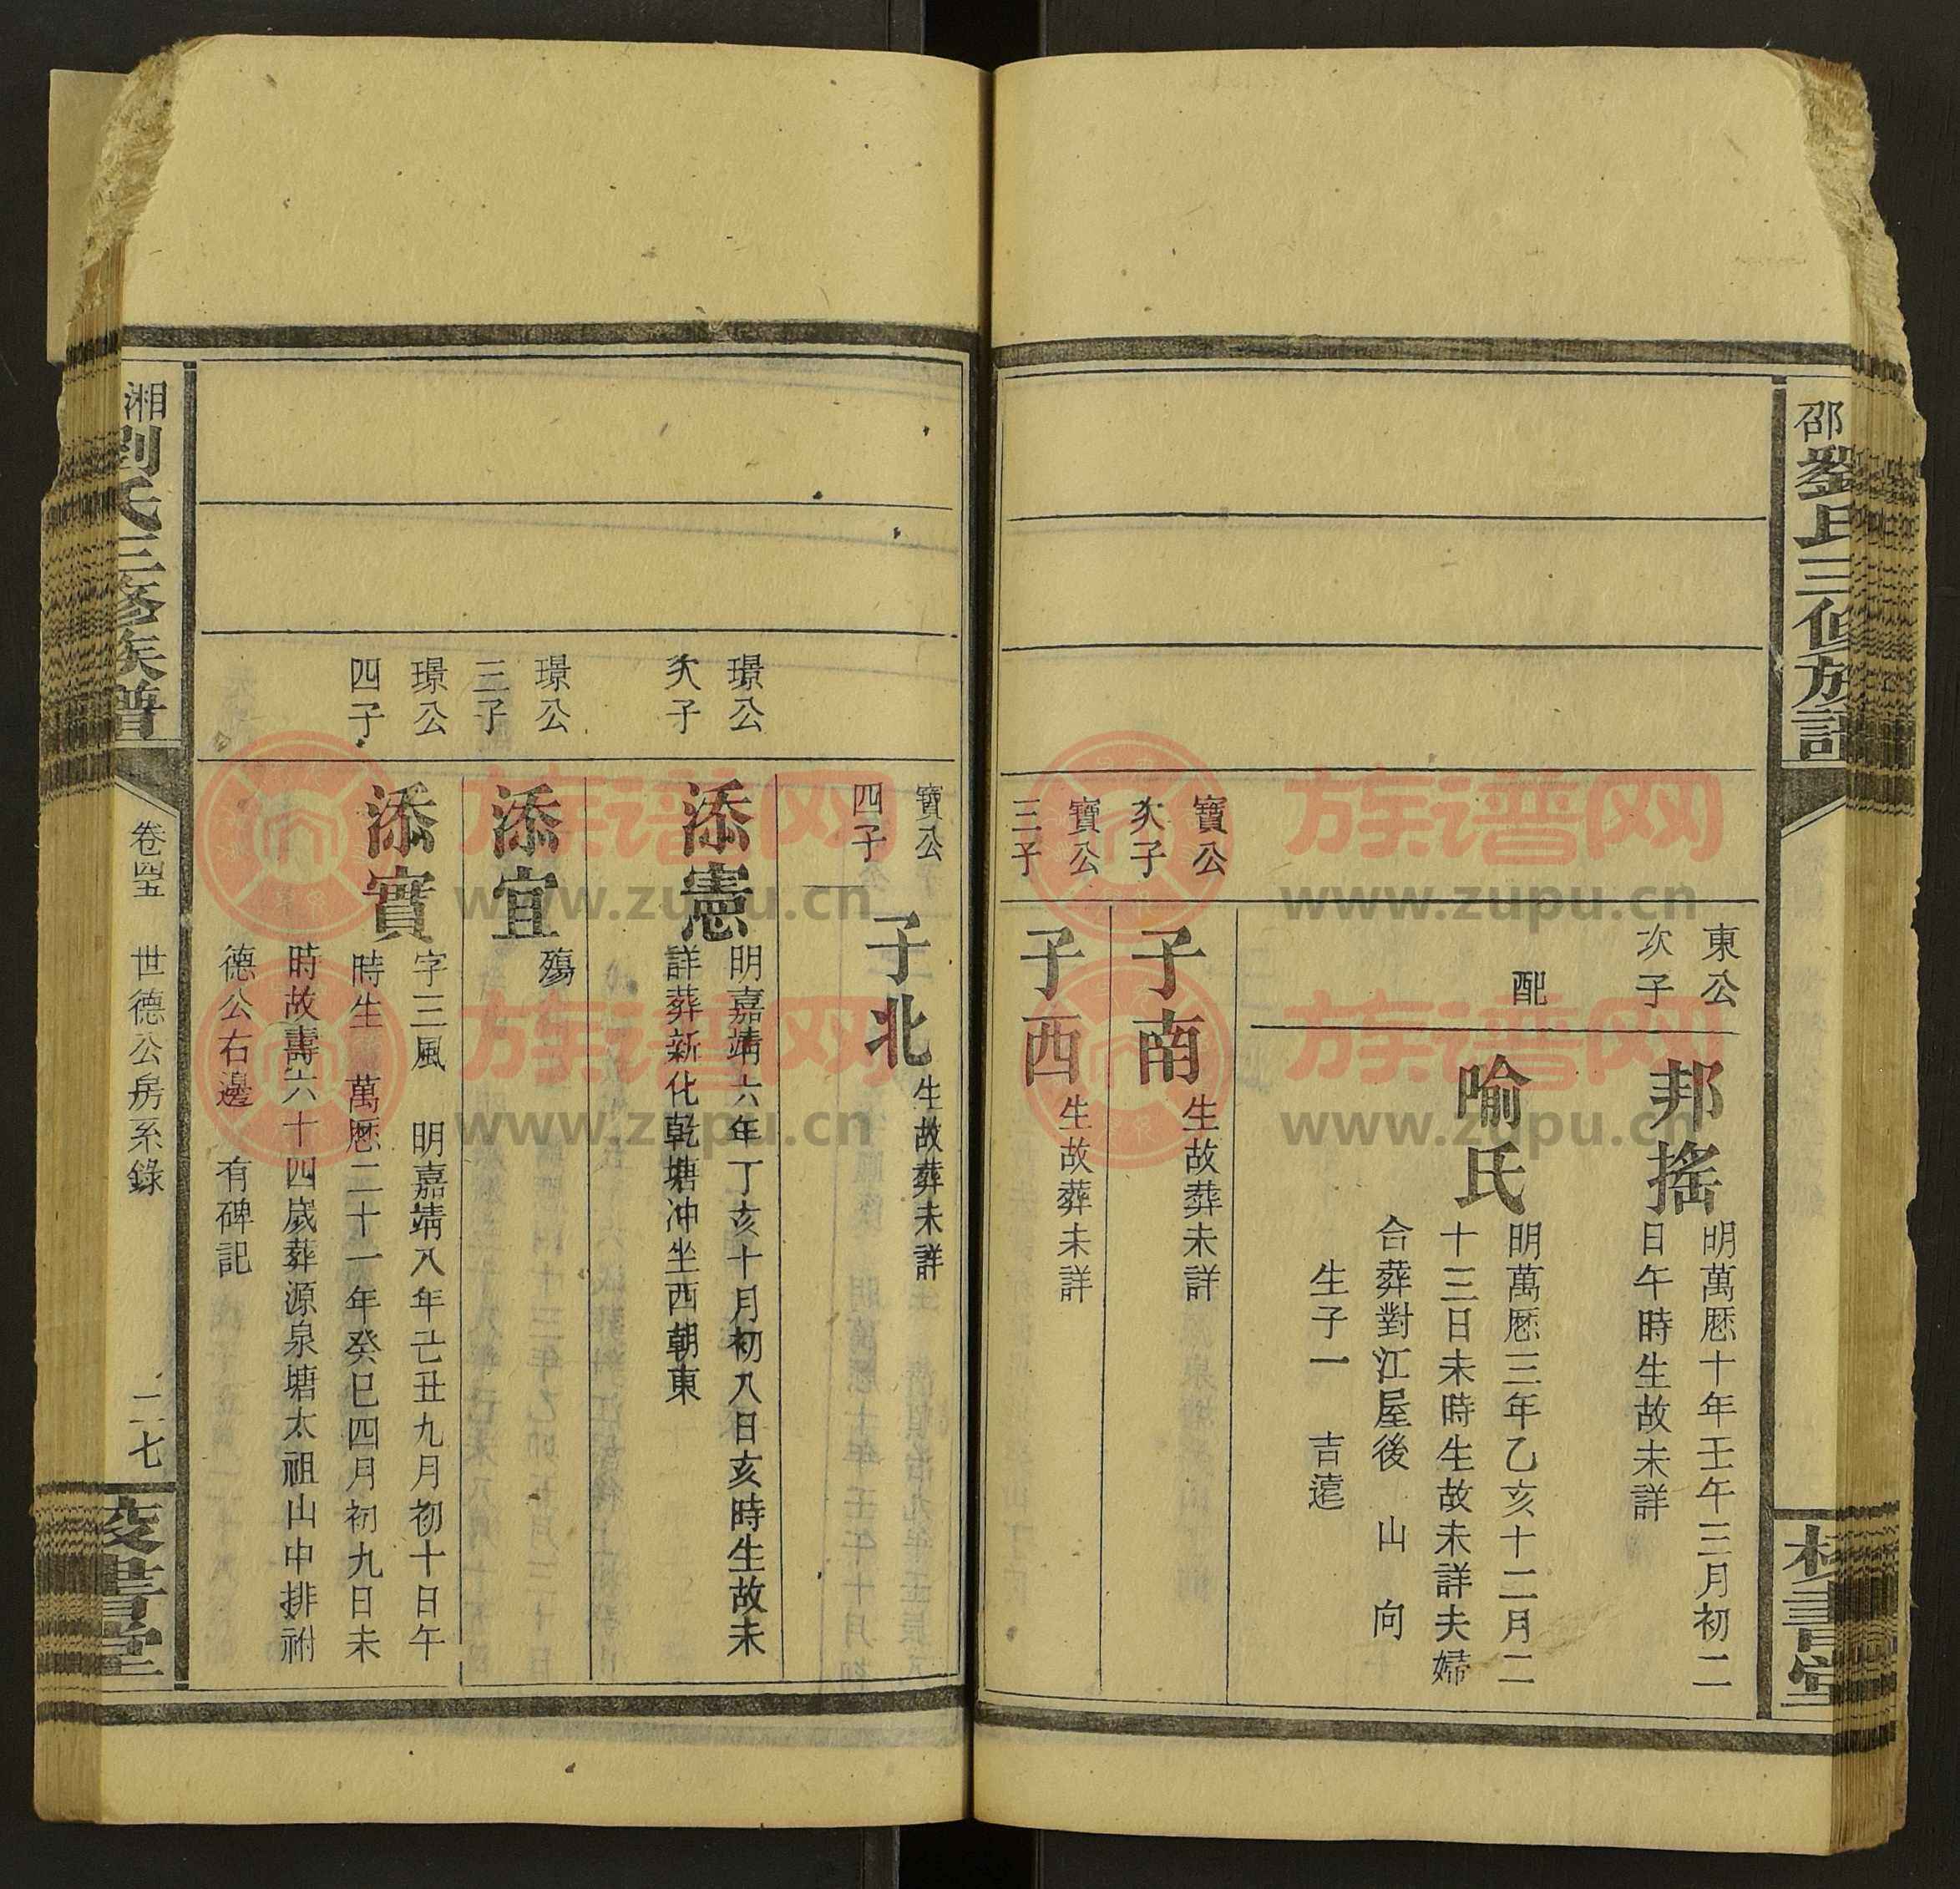 邵劉氏三修族譜
校書堂
東公
次子
邦搖
明萬厯十年壬午三月初二
日午時生故未詳
配
喻氏
明萬厯三年乙亥十二月二
十三日未時生故未詳夫婦
合葬對江屋後 山 向
生子一 吉遠
寶公
次子
子南
生故葬未詳
寶公
三子
子西
生故葬未詳
寶公
四子
子北
生故葬未詳
璟公
次子
添憲
明嘉靖六年丁亥十月初八日亥時生故未
詳葬新化乾塘冲坐西朝東
璟公
三子
添宜
殤
璟公
四子
添實
字三風 明嘉靖八年己丑九月初十日午
時生 萬厯二十一年癸巳四月初九日未
時故壽六十四嵗葬源泉塘太祖山中排祔
德公右邊 有碑記
湘劉氏三修族譜
卷四五 世德公房系錄
二七
校書堂
族谱网
www.zupu.cn
族谱网
www.zupu.cn
族谱网
www.zupu.cn
族谱网
www.zupu.cn